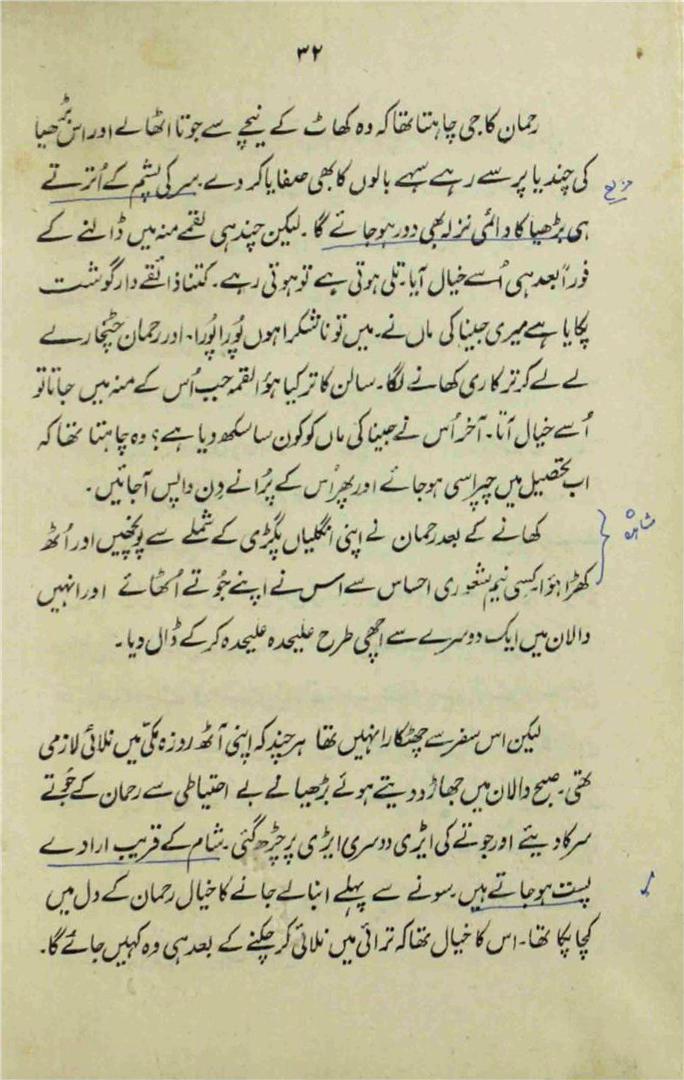 ۳۲
رحمان کا جی چاہتا تھا کہ وہ کھاٹ کے نیچے سے جوتا اٹھالے اور اس بُڑھیا
کی چندیا پر سے رہے سہے بالوں کا بھی صفایا کر دے۔ سر کی پشم کے اُترتے
ہی بڑھیا کا دائمی نزلہ بھی دور ہو جائے گا۔ لیکن چند ہی لقمے منہ میں ڈالنے کے
فوراً بعد ہی اُسے خیال آیا۔ تلی ہوتی ہے تو ہوتی رہے۔ کتنا ذائقے دار گوشت
پکایا ہے میری جینا کی ماں نے۔ میں تو ناشکرا ہوں پُورا پُورا۔ اور رحمان چٹخارے
لے لے کر ترکاری کھانے لگا۔ سالن کا تر کیا ہؤا لقمہ جب اُس کے منہ میں جاتا تو
اُسے خیال آتا۔ آخر اُس نے جینا کی ماں کو کون سا سکھ دیا ہے؟ وہ چاہتا تھا کہ
اب تحصیل میں چپراسی ہو جائے اور پھر اُس کے پُرانے دِن واپس آجائیں۔
کھانے کے بعد رحمان نے اپنی انگلیاں پگڑی کے شملے سے پونچھیں اور اُٹھ
کھڑا ہؤا۔ کسِی نیم شعوری احساس سے اس نے اپنے جُوتے اُٹھائے اور انہیں
دالان میں ایک دوسرے سے اچھی طرح علیحدہ علیحدہ کر کے ڈال دیا۔
لیکن اس سفر سے چھٹکارا نہیں تھا ہر چند کہ اپنی آٹھ روزہ مکّی میں نلائی لازمی
تھی۔ صبح دالان میں جھاڑو دیتے ہوئے بڑھیا نے بے احتیاطی سے رحمان کے جُوتے
سرکا دیئے اور جوتے کی ایڑی دوسری ایڑی پر چڑھ گئی۔ شام کے قریب ارادے
پست ہو جاتے ہیں۔ سونے سے پہلے انبالے جانے کا خیال رحمان کے دل میں
کچا پکا تھا۔ اس کا خیال تھا کہ ترائی میں نلائی کر چکنے کے بعد ہی وہ کہیں جائے گا۔